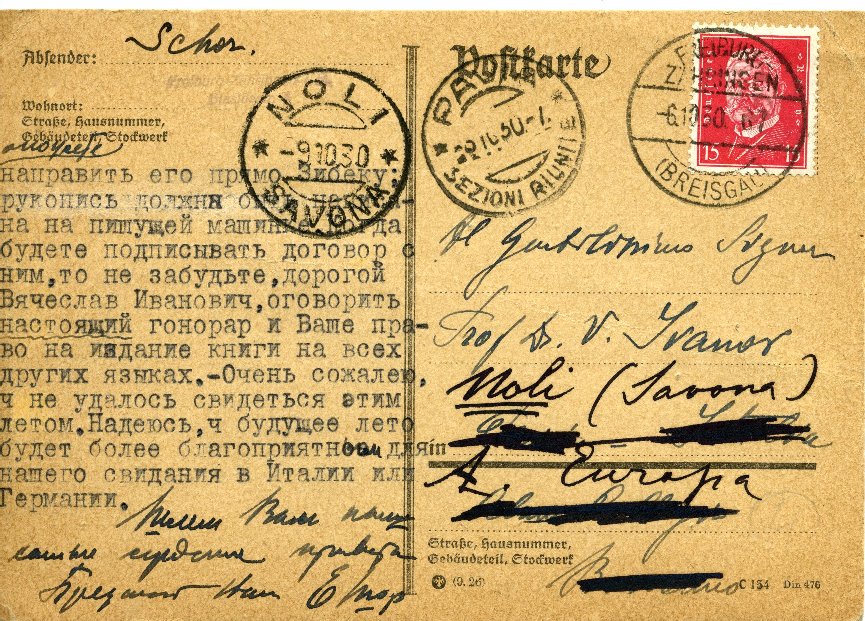 Absender: Schor.
Wohnort:
Straße, Hausnummer,
Gebäudeteil, Stockwerk
можете
направить его прямо Зибеку;
рукопись должна
на на пишущей
будете подписывать договор с
ним,то не забудьте,дорогой
Вячеслав Иванович,оговорить
настоящий гонорар и Ваше пра-
во на издание книги на всех
других языках.-Очень сожалею,
ч не удалось свидеться этим
летом.Надеюсь,ч будущее лето
будет более благоприятным для
нашего свидания в Италии или
Германии.
Шлем Вам наши
самые сердечные приветы
Преданный Вам
NOLI
-9.10.30
SAVONA
Postkarte
PAVIA
10.30
SEZIONI RIUNITE
FREIBURG
ZÄHRINGEN
-6.10.30
(BREISGAU)
Deutsches Reich
15 15
Signor
Prof D. V. Ivanov
Noli (Savona)
in
A. Europa
Straße, Hausnummer,
Gebäudeteil, Stockwerk
(9. 26)
C 154 Din 476